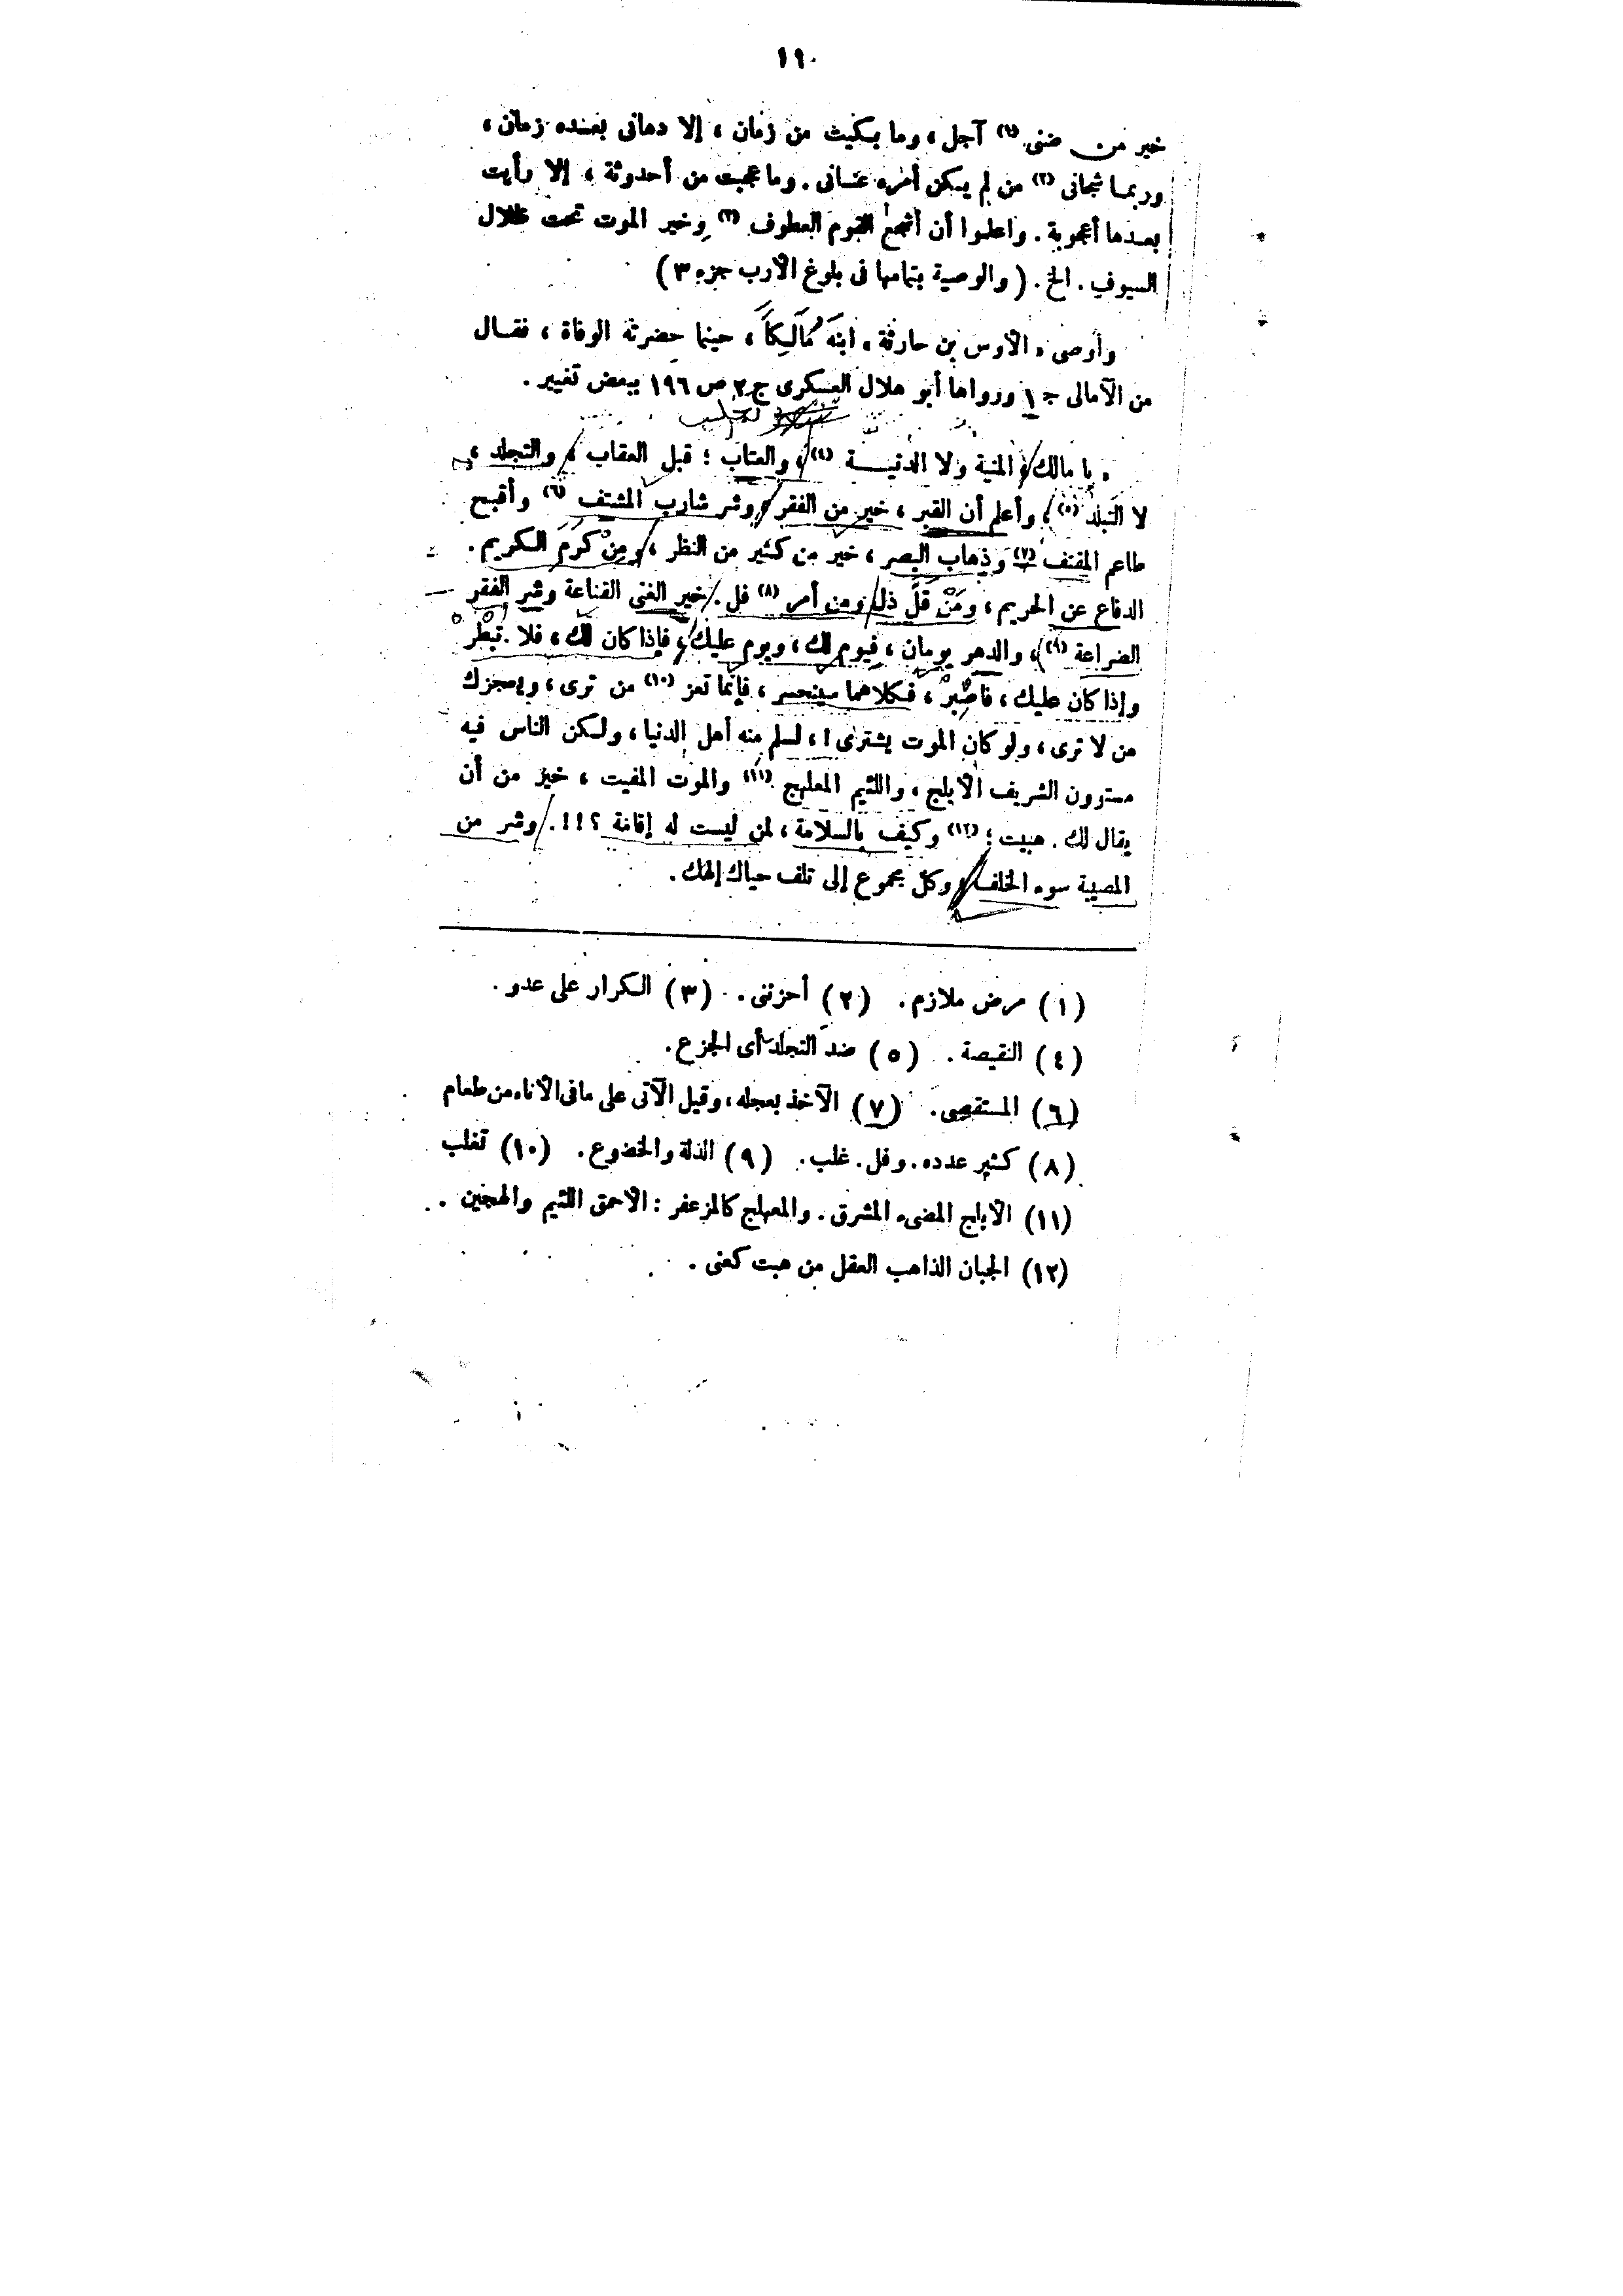 ١٩٠
خير من ضنى (١) آجل ، وما بكيت من زمان ، إلا دهانى بعده زمان ،
وربما شجانى (٢) من لم يكن أمره عنانى . وما عجبت من أحدوثة ، إلا رأيت
بعدها أعجوبة . واعلموا أن أشجع القوم العطوف (٣) وخير الموت تحت ظلال
السيوف . الخ . ( والوصية بتمامها فى بلوغ الأرب جزء ٣ )
وأوصى « الأوس بن حارثة » ابنَه مَالِكاً ، حينما حضرته الوفاة ، فقال
من الآمالى جـ ١ ورواها أبو هلال العسكرى ج ٢ ص ١٩٦ ببعض تغيير .
« يا مالك المنية ولا الدنيـة (٤) ، والعتاب ؛ قبل العقاب ، والتجلد ،
لا التبلد (٥) ، وأعلم أن القبر ، خير من الفقر ، وشر شارب المشتف (٦) وأقبح
طاعم المقتف (٧) وذهاب البصر ، خير من كثير من النظر ، ومِنْ كَرَمَ الكريم .
الدفاع عن الحريم ، ومَنْ قَلَّ ذل ومن أمر (٨) فل . خير الغنى القناعة وشر الفقر
الضراعة (٩) ، والدهر يومان ، فيوم لك ، ويوم عليك ، فإذا كان لك ، فلا تبْطَرْ
وإذا كان عليك ، فاصْبِرْ ، فكلاهما سينحسر ، فإنما تعز (١٠) من ترى ، ويعجزك
من لا ترى ، ولو كان الموت يشترى ! ، لسلم منه أهل الدنيا ، ولكن الناس فيه
مستوون الشريف الأبلج ، واللئيم المعلهج (١١) والموت المفيت ، خير من أن
يقال لك . هبيت ؛ (١٢) وكيف بالسلامة ، لمن ليست له إقامة ؟!!. وشر من
المصيبة سوء الخلف ، وكل مجموع إلى تلف حياك إلهك .
(١) مرض ملازم . (٢) أحزننى . (٣) الكرار على عدو .
(٤) النقيصة . (٥) ضد التجلد أى الجزع .
(٦) المستقصى . (٧) الآخذ بعجله ، وقيل الآتى على مافى الأناء من طعام
(٨) كثير عدده . وفل . غلب . (٩) الذلة والخضوع . (١٠) تغلب
(١١) الأبلج المضىء المشرق . والمعهلج كالمزعفر : الأحمق اللئيم والهجين .
(١٢) الجبان الذاهب العقل من هبت كعنى .